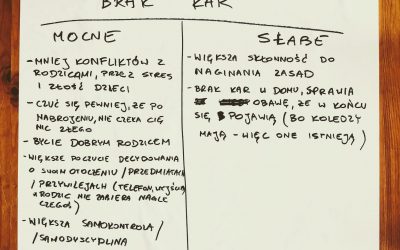 BRAK KAR
MOCNE
- MNIEJ KONFLIKTÓW Z
RODZICAMI, PRZEZ STRES
I ZŁOŚĆ DZIECI
- CZUĆ SIĘ PEWNIEJ, ŻE PO
NABROJENIU, NIE CZEKA CIĘ
NIC ZŁEGO
- BYCIE DOBRYM RODZICEM
- WIĘKSZE POCZUCIE DECYDOWANIA
O SWOIM OTOCZENIU / PRZEDMIOTACH
/ PRZYWILEJACH (TELEFON, WYJŚCIA,
RODZIC NIE ZABIERA NAGLE
CZEGOŚ)
- WIĘKSZA SAMOKONTROLA /
/ SAMODYSCYPLINA
SŁABE
- WIĘKSZA SKŁONNOŚĆ DO
NAGINANIA ZASAD
- BRAK KAR W DOMU, SPRAWIA
OBAWĘ, ŻE W KOŃCU
SIĘ POJAWIĄ (BO KOLEDZY
MAJĄ - WIĘC ONE ISTNIEJĄ)